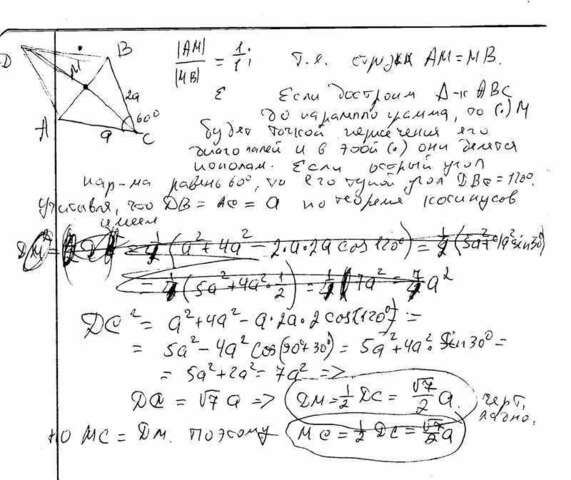 D
B
M
2a
60°
A
a
C
|AM| / |MB| = 1/1; т.е. AM = MB.
Если достроим Δ-к ABC
до параллелограмма, то (.) M
будет точкой пересечения его
диагоналей и в этой (.) они делятся
пополам. Если острый угол
пар-ма равень 60°, то его тупой угол DBC = 120°.
учитывая, что DB = AC = a по теореме косинусов
имеем
DC² = a² + 4a² - a·2a·2 cos(120°) =
= 5a² - 4a² cos(90°+30°) = 5a² + 4a²· Sin30° =
= 5a² + 2a² = 7a² =>
DC = √7 a => DM = ½ DC = √7/2 a.
но MC = DM. поэтому MC = ½ DC = √7/2 a